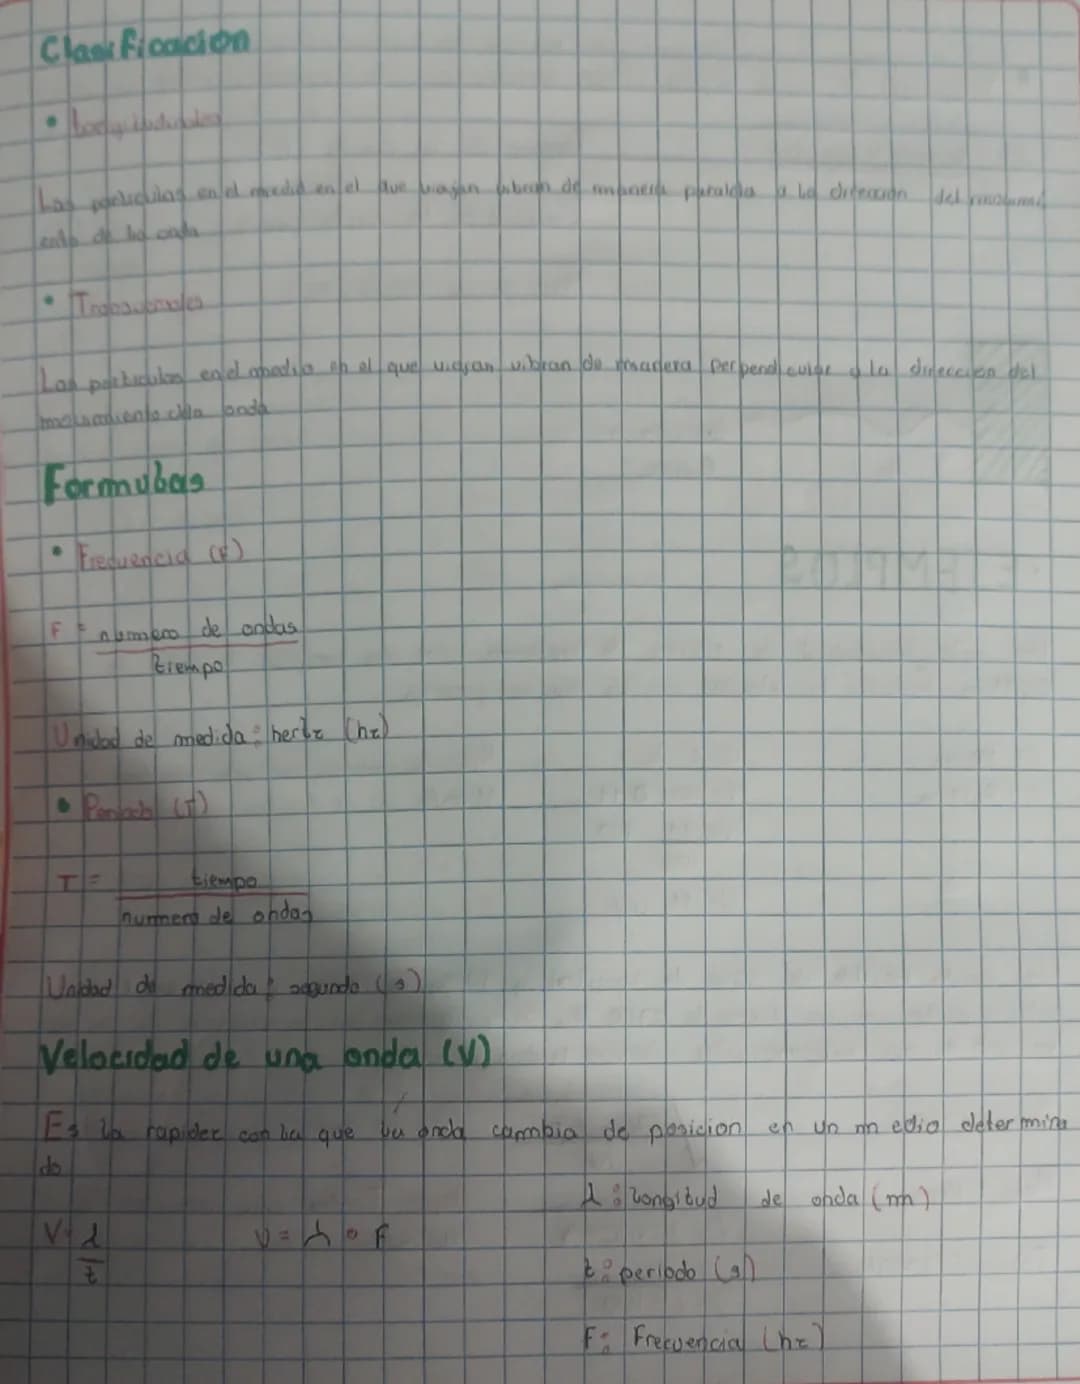 Clasificacion
• Longitudinales
Las particulas en el medio en el que viajan vibran de manera paralela a la direccion del movimi
ento de la onda
• Transversales
Las particulas en el medio en el que viajan vibran de manera perpendicular a la direccion del
movimiento de la onda
Formulas
• Frecuencia (F)
F = numero de ondas
tiempo
Unidad de medida: hertz (hz)
• Periodo (T)
T = tiempo
numero de ondas
Unidad de medida: segundo (s)
Velocidad de una onda (V)
Es la rapidez con la que la onda cambia de posicion en un medio determina
do
λ: Longitud de onda (m)
V = λ
t
V = λ • F
t: periodo (s)
F: Frecuencia (hz)